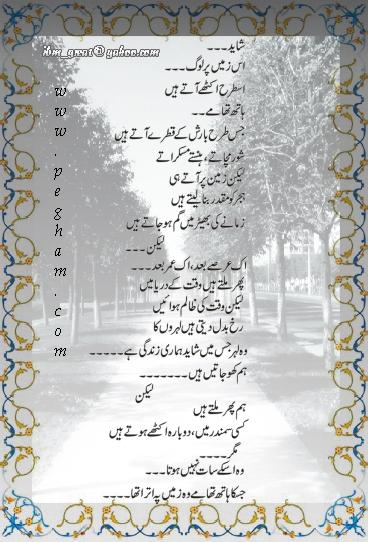 شاید۔۔۔
ilsm_great@yahoo.com
اس زمیں پر لوگ۔۔۔
اسطرح اکٹھے آتے ہیں
ہاتھ تھامے۔۔
جس طرح بارش کے قطرے آتے ہیں
شور مچاتے، ہنستے مسکراتے
لیکن زمین پر آتے ہی
ہجر کو مقدر بنا لیتے ہیں
زمانے کی بھیڑ میں گم ہو جاتے ہیں
لیکن۔۔۔
اک عرصے بعد، اک عمر بعد۔۔۔
پھر ملتے ہیں وقت کے دریا میں
لیکن وقت کی ظالم ہوائیں
رخ بدل دیتی ہیں لہروں کا
وہ لہر جس میں شاید ہماری زندگی ہے۔۔۔۔۔
ہم کھو جاتیں ہیں۔۔۔۔۔۔۔
لیکن
ہم پھر ملتے ہیں
کسی سمندر میں، دوبارہ اکٹھے ہوتے ہیں
مگر۔۔۔۔
وہ اسکے سات نہیں ہوتا۔۔۔
جسکا ہاتھ تھامے وہ زمیں پہ اترا تھا۔۔۔۔
www.pegham.com